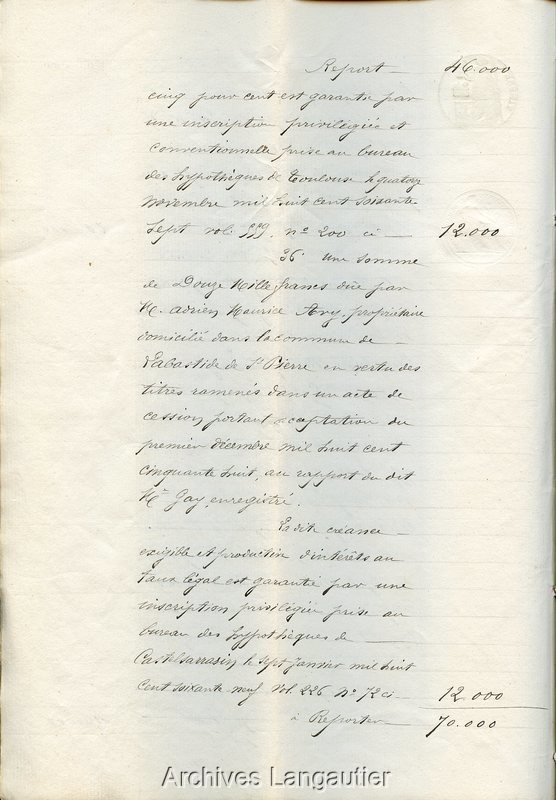 Report — 46.000
cinq pour cent est garantie par
une inscription privilégiée et
conventionnelle prise au bureau
des hypothèques de Toulouse le quatorze
novembre mil huit cent soixante
sept vol. 559. n° 200 ci — 12.000
3°. Une somme
de Douze Mille francs due par
M. Adrien Maurice propriétaire
domicilié dans la commune de
Labastide de St Pierre en vertu des
titres ramenés dans un acte de
cession portant acceptation du
premier décembre mil huit cent
cinquante huit, au rapport du dit
Me Gay, enregistré.
Ladite créance
exigible et productive d'intérêts au
taux légal est garantie par une
inscription privilégiée prise au
bureau des hypothèques de —
Castelsarrasin le sept Janvier mil huit
cent soixante neuf Vol. 226 N° 72 ci — 12.000
à Reporter 70.000
Archives Langautier